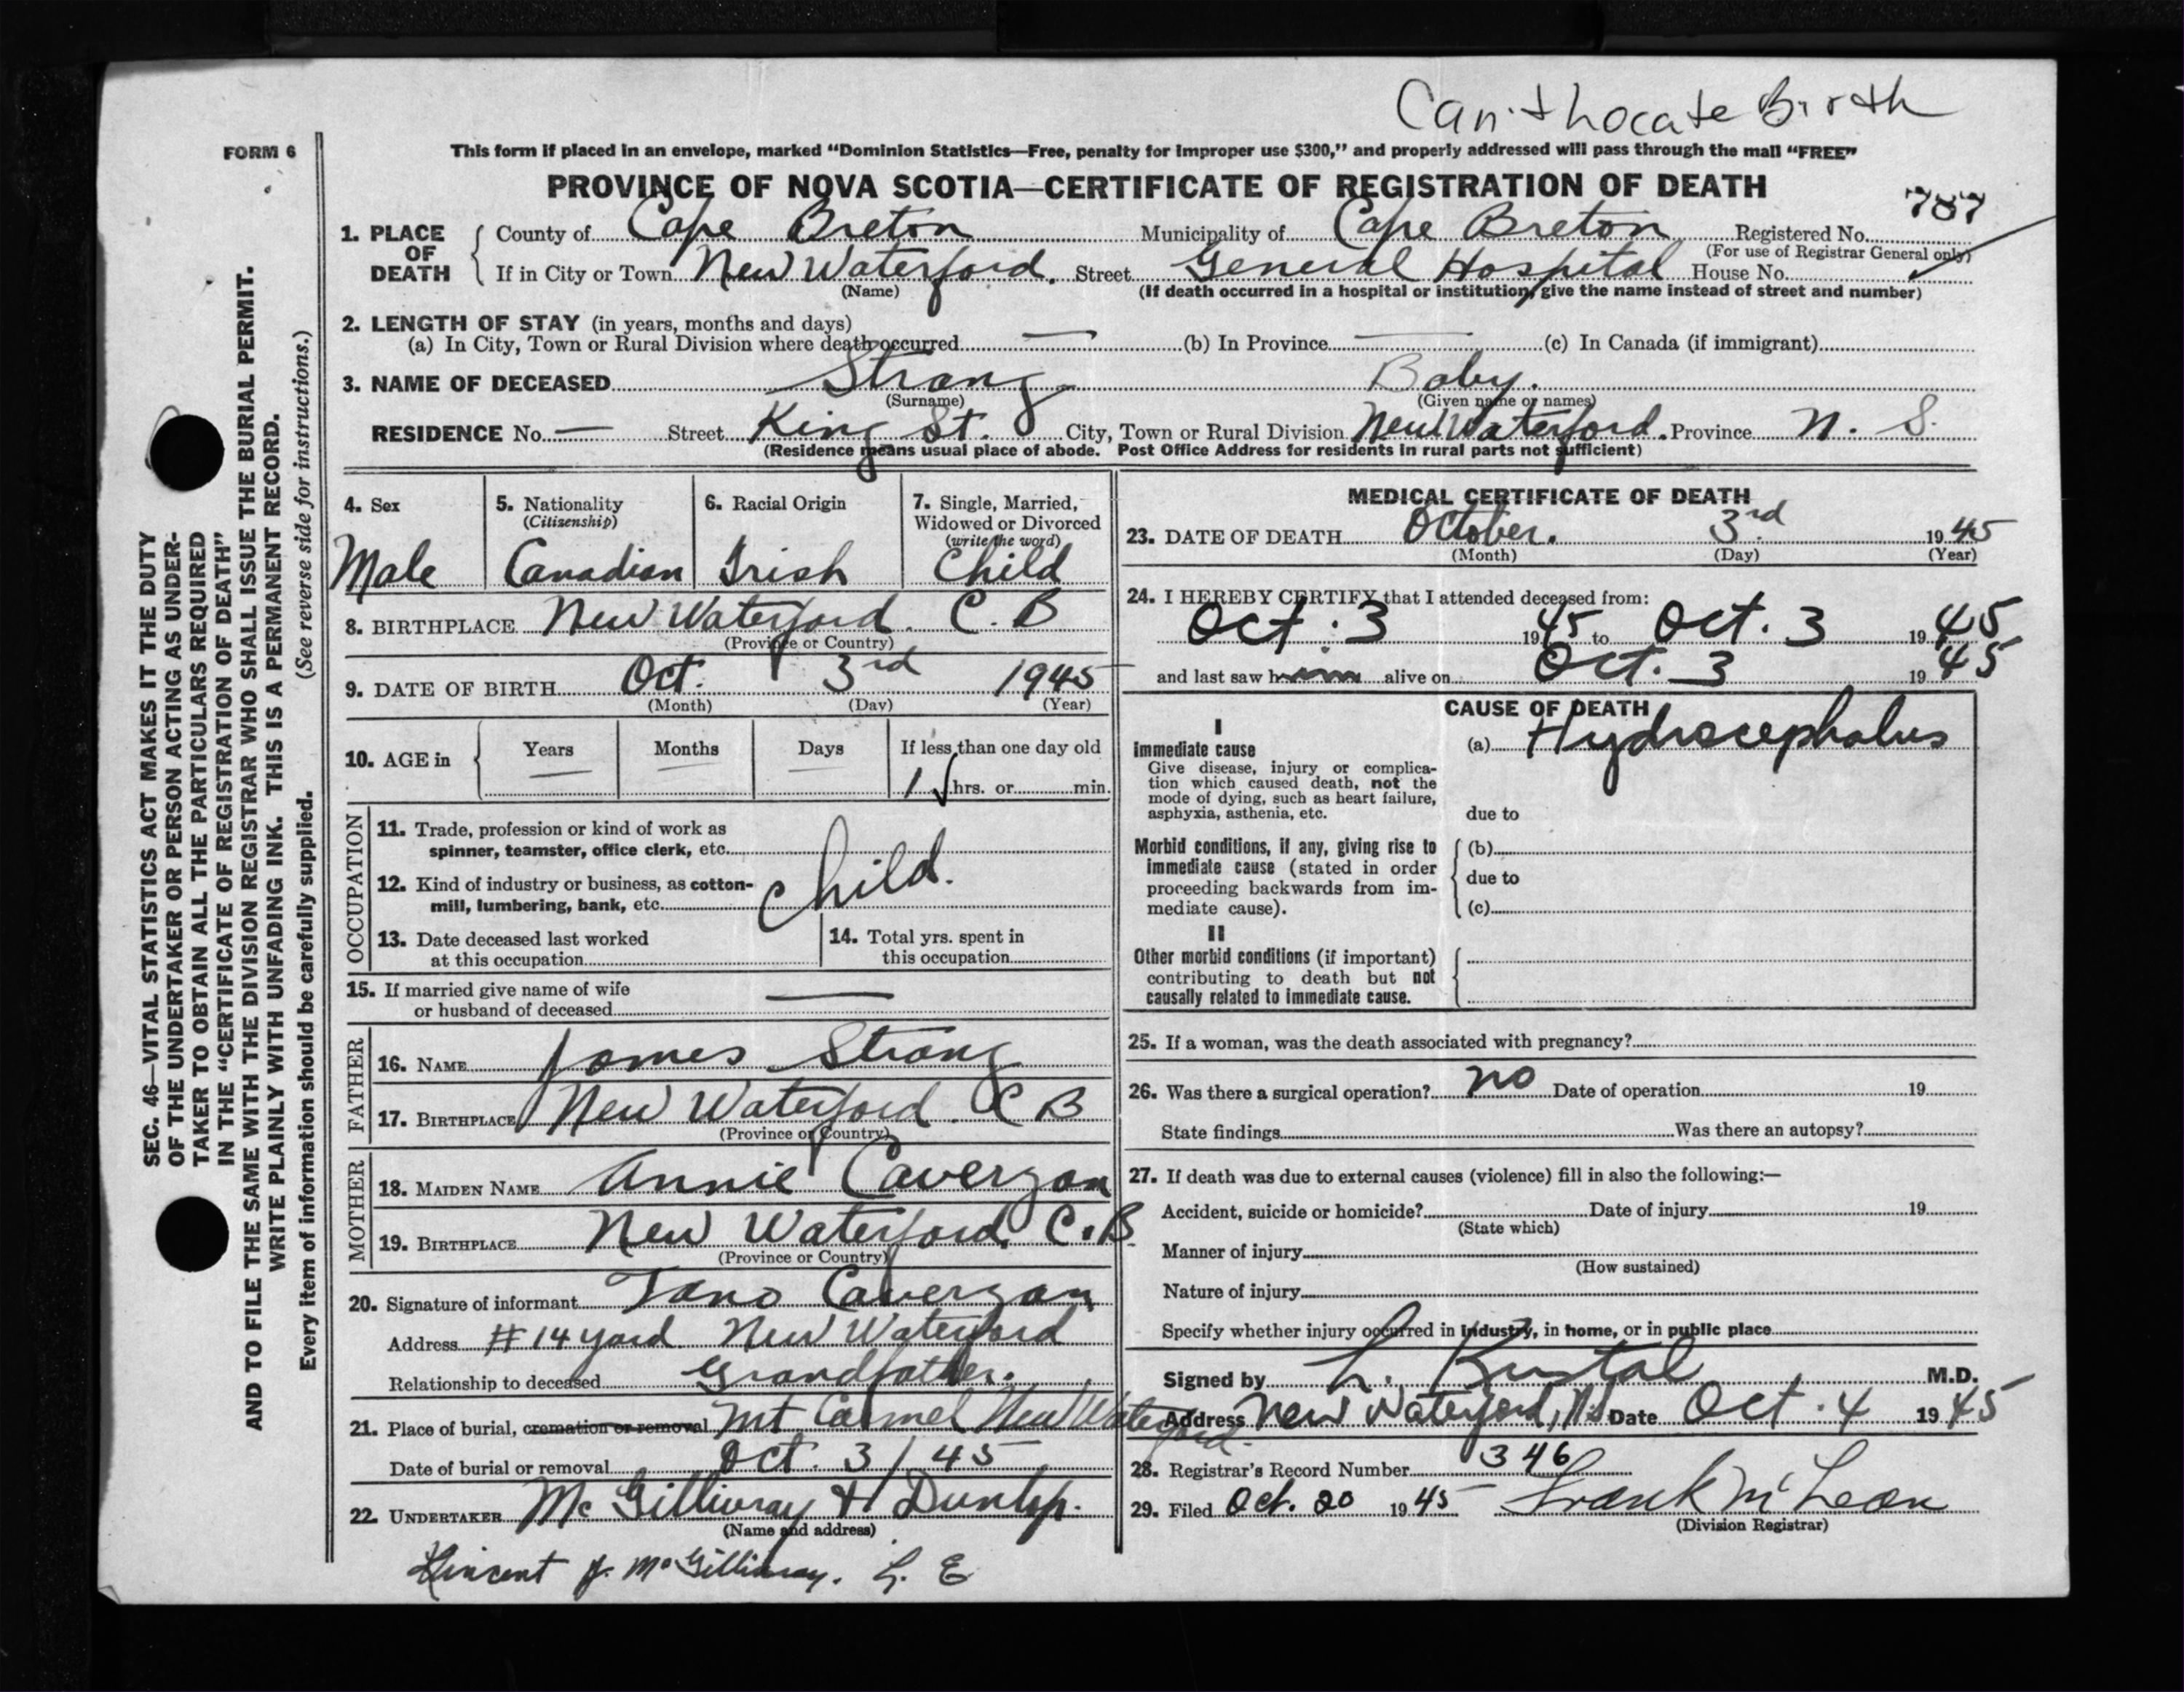 Can't Locate Birth
FORM 6
This form if placed in an envelope, marked “Dominion Statistics—Free, penalty for improper use $300,” and properly addressed will pass through the mail “FREE”
PROVINCE OF NOVA SCOTIA—CERTIFICATE OF REGISTRATION OF DEATH
787
1. PLACE OF DEATH County of Cape Breton Municipality of Cape Breton Registered No.
(For use of Registrar General only)
If in City or Town New Waterford. Street General Hospital House No.
(Name) (If death occurred in a hospital or institution, give the name instead of street and number)
2. LENGTH OF STAY (in years, months and days)
(a) In City, Town or Rural Division where death occurred — (b) In Province — (c) In Canada (if immigrant)
3. NAME OF DECEASED Strang Baby.
(Surname) (Given name or names)
RESIDENCE No. — Street King St. City, Town or Rural Division New Waterford. Province N. S.
(Residence means usual place of abode. Post Office Address for residents in rural parts not sufficient)
4. Sex 5. Nationality 6. Racial Origin 7. Single, Married,
(Citizenship) Widowed or Divorced
(write the word)
Male Canadian Irish Child
8. BIRTHPLACE New Waterford. C. B
(Province or Country)
9. DATE OF BIRTH Oct. 3rd 1945
(Month) (Day) (Year)
10. AGE in Years Months Days If less than one day old
— — — 1 hrs. or min.
OCCUPATION
11. Trade, profession or kind of work as
spinner, teamster, office clerk, etc.
12. Kind of industry or business, as cotton-
mill, lumbering, bank, etc.
Child.
13. Date deceased last worked
at this occupation
14. Total yrs. spent in
this occupation
15. If married give name of wife
or husband of deceased —
FATHER
16. NAME James Strang
17. BIRTHPLACE New Waterford. C B
(Province or Country)
MOTHER
18. MAIDEN NAME Annie Caverzan
19. BIRTHPLACE New Waterford. C. B.
(Province or Country)
20. Signature of informant Caverzan
Address # 14 yard New Waterford
Relationship to deceased Grandfather.
21. Place of burial, cremation or removal Mt Carmel New Waterford.
Date of burial or removal Oct. 3/45
22. UNDERTAKER McGillivray & Dunlop.
(Name and address)
Vincent J. McGillivray. L. E
MEDICAL CERTIFICATE OF DEATH
23. DATE OF DEATH October. 3rd 1945
(Month) (Day) (Year)
24. I HEREBY CERTIFY that I attended deceased from:
Oct. 3 1945 to Oct. 3 1945
and last saw him alive on Oct. 3 1945
CAUSE OF DEATH
I
Immediate cause (a) Hydrocephalus
Give disease, injury or complica-
tion which caused death, not the
mode of dying, such as heart failure,
asphyxia, asthenia, etc. due to
Morbid conditions, if any, giving rise to (b)
immediate cause (stated in order
proceeding backwards from im- due to
mediate cause). (c)
II
Other morbid conditions (if important)
contributing to death but not
causally related to immediate cause.
25. If a woman, was the death associated with pregnancy?
26. Was there a surgical operation? no Date of operation 19
State findings Was there an autopsy?
27. If death was due to external causes (violence) fill in also the following:—
Accident, suicide or homicide? Date of injury 19
(State which)
Manner of injury
(How sustained)
Nature of injury
Specify whether injury occurred in industry, in home, or in public place
Signed by L. M.D.
Address New Waterford, N.S Date Oct. 4 1945
28. Registrar's Record Number 346
29. Filed Oct. 20 1945 Frank McLean
(Division Registrar)
SEC. 46—VITAL STATISTICS ACT MAKES IT THE DUTY
OF THE UNDERTAKER OR PERSON ACTING AS UNDER-
TAKER TO OBTAIN ALL THE PARTICULARS REQUIRED
IN THE “CERTIFICATE OF REGISTRATION OF DEATH”
AND TO FILE THE SAME WITH THE DIVISION REGISTRAR WHO SHALL ISSUE THE BURIAL PERMIT.
WRITE PLAINLY WITH UNFADING INK. THIS IS A PERMANENT RECORD.
Every item of information should be carefully supplied. (See reverse side for instructions.)